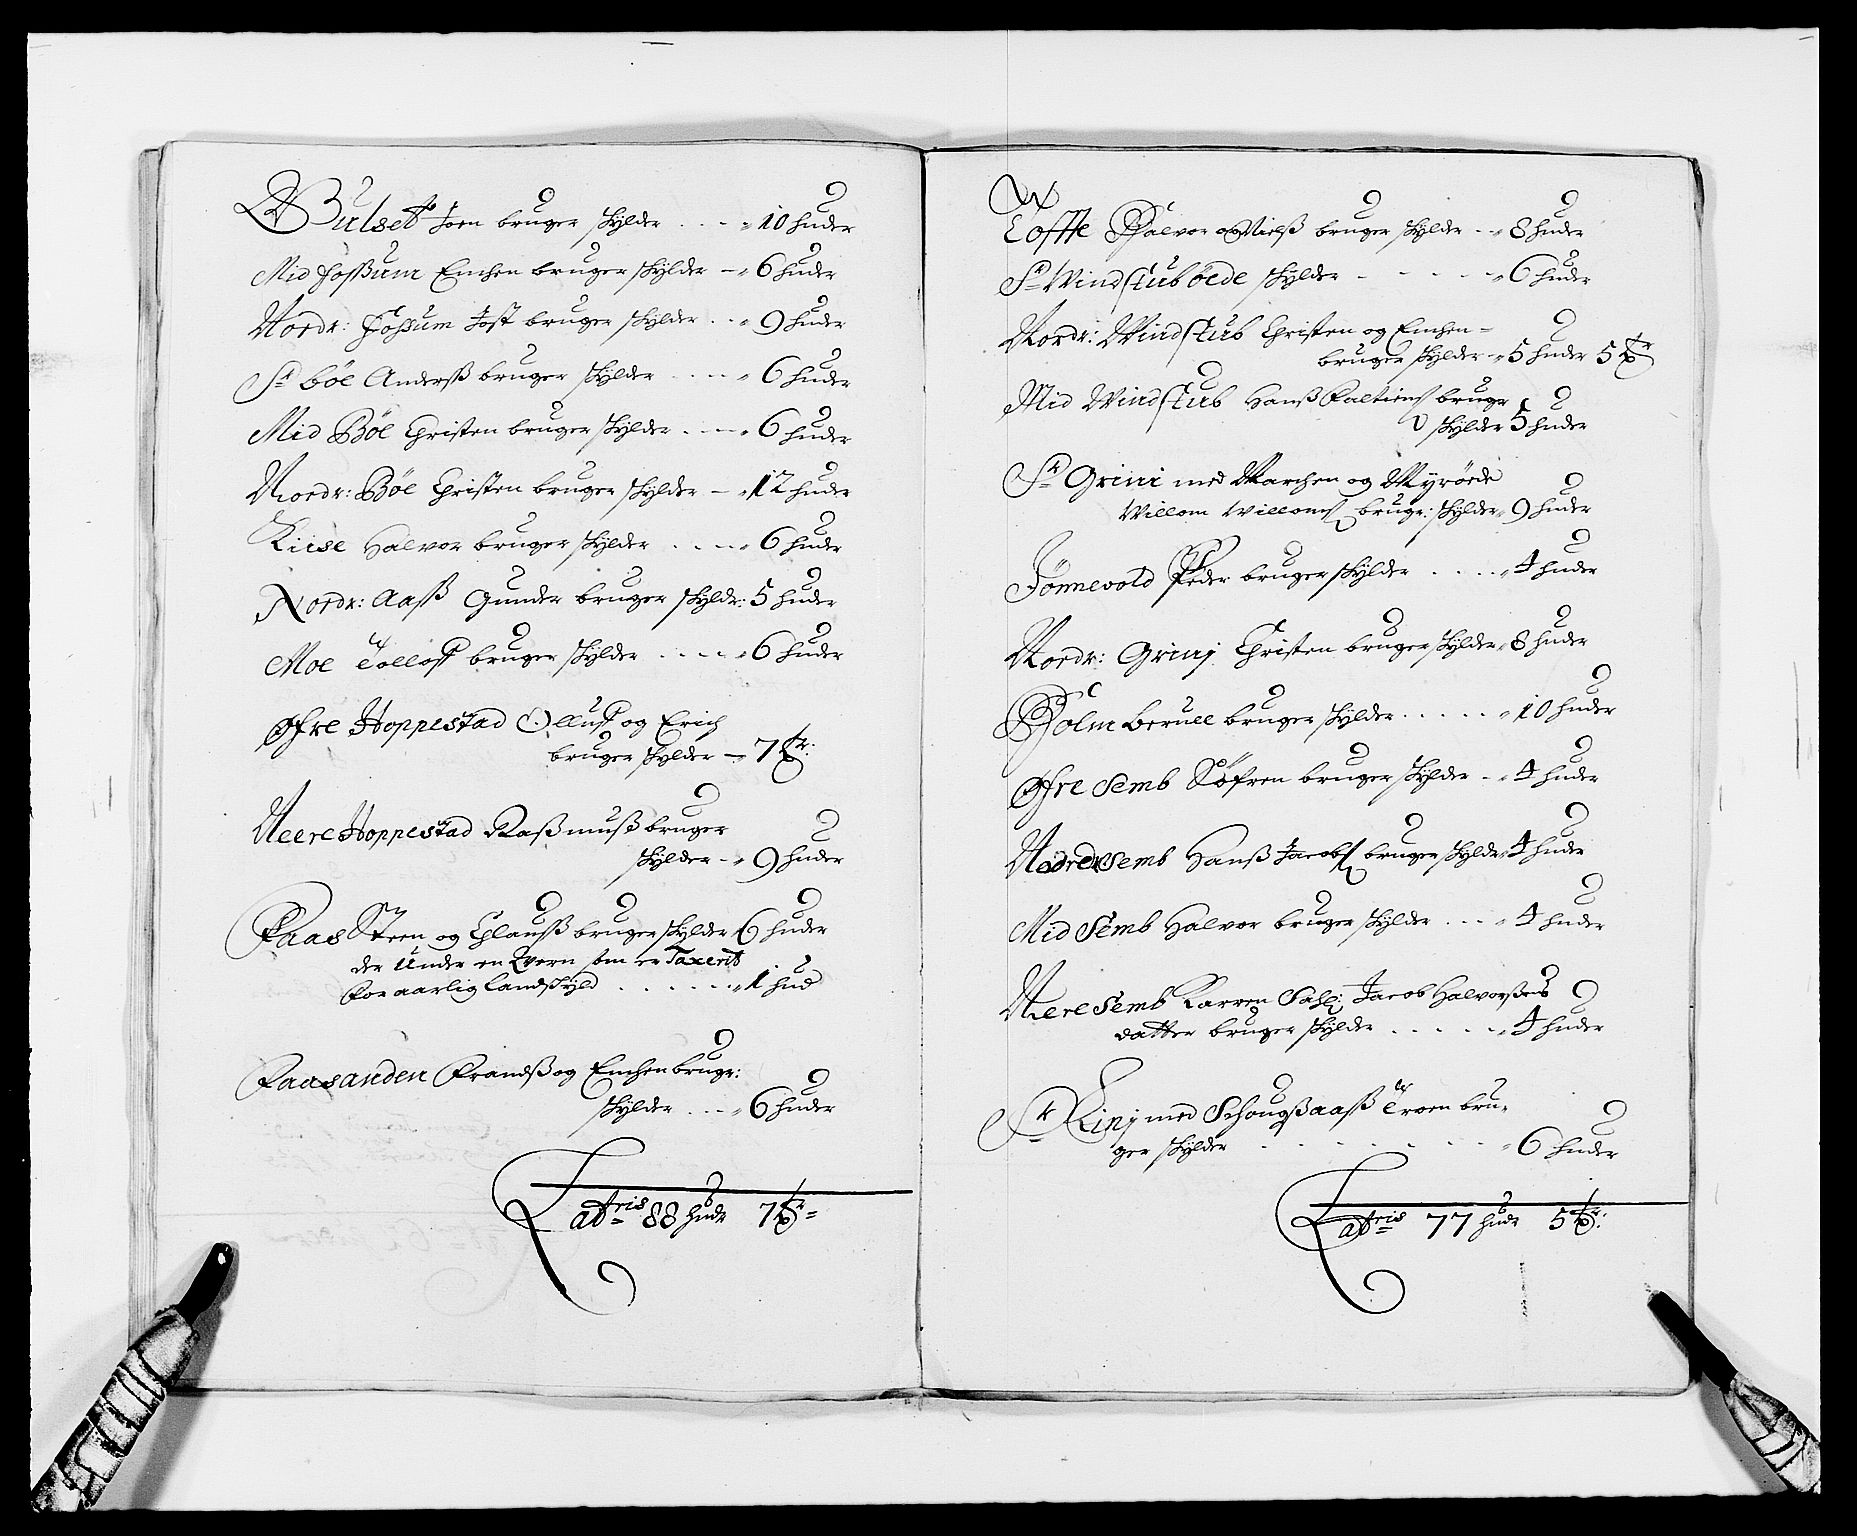 Bulset Joen bruger skylder . . . . 10 huder
Mid Fossum Emhen bruger skylder – 6 huder
Nordr: Fossum Jost bruger skylder . . 9 huder
Sr böe Anderss bruger skylder . . . . 6 huder
Mid Böe Christen bruger skylder . . . . 6 huder
Nordr: Böe Christen bruger skylder – 12 huder
Kiise Halvor bruger skylder . . . . 6 huder
Nordr: Aass Gunder bruger skyldr: 5 huder
Moe Tolloff bruger skylder . . . . 6 huder
Øfre Hoppestad Olluff og Erich
bruger skylder – 7 
Neere Hoppestad Rassmuss bruger
skylder – 9 huder
Faas Steen og Clauss bruger skylder 6 huder
der under en Qvern som er Taxerit
for aarlig landskyld . . . . . . 1 hud
Faasanden Frandss og Emhen brugr:
skylder . . . . 6 huder
Latris 88 hudr 7 
Loffte Halvor og Nielss bruger skylder . . 8 huder
Sr Windstub öede skylder - - - - - 6 huder
Nordr: Windstub Christen og Emhen =
bruger skylder – 5 huder 5 
Mid Windstub Hanss bruger
skylder 5 huder
Sr Grini med Marchen og Myröede
Willom Willoms brugr: skylder 9 huder
Tönnevold Peder bruger skylder . . . . 4 huder
Nordr: Grinj Christen bruger skylder 8 huder
Holm Beruel bruger skylder . . . . . 10 huder
Øfre Semb Söfren bruger skylder – 4 huder
Nordre Semb Hanss Jacobs bruger skylder 4 huder
Mid Semb Halvor bruger skylder . . . . 4 huder
Nere Semb Karren Sahl: Jacob Halvorssens
datter bruger skylder . . . . . 4 huder
Sr Rinj med Schougssaass Troen bru-
ger skylder . . . . . . . 6 huder
Latris 77 hudr 5